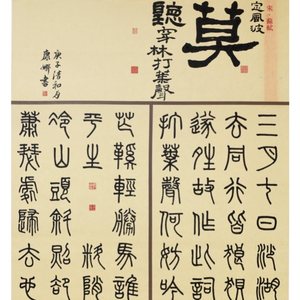 宋·蘇軾
定風波
莫
聽穿林打葉聲
庚子清和月
三月七日沙湖
去同行皆狼狽
遂晴故作此詞
打葉聲何妨吟
芒鞋輕勝馬誰
平生 料峭
冷山頭斜照卻
蕭瑟處歸去也